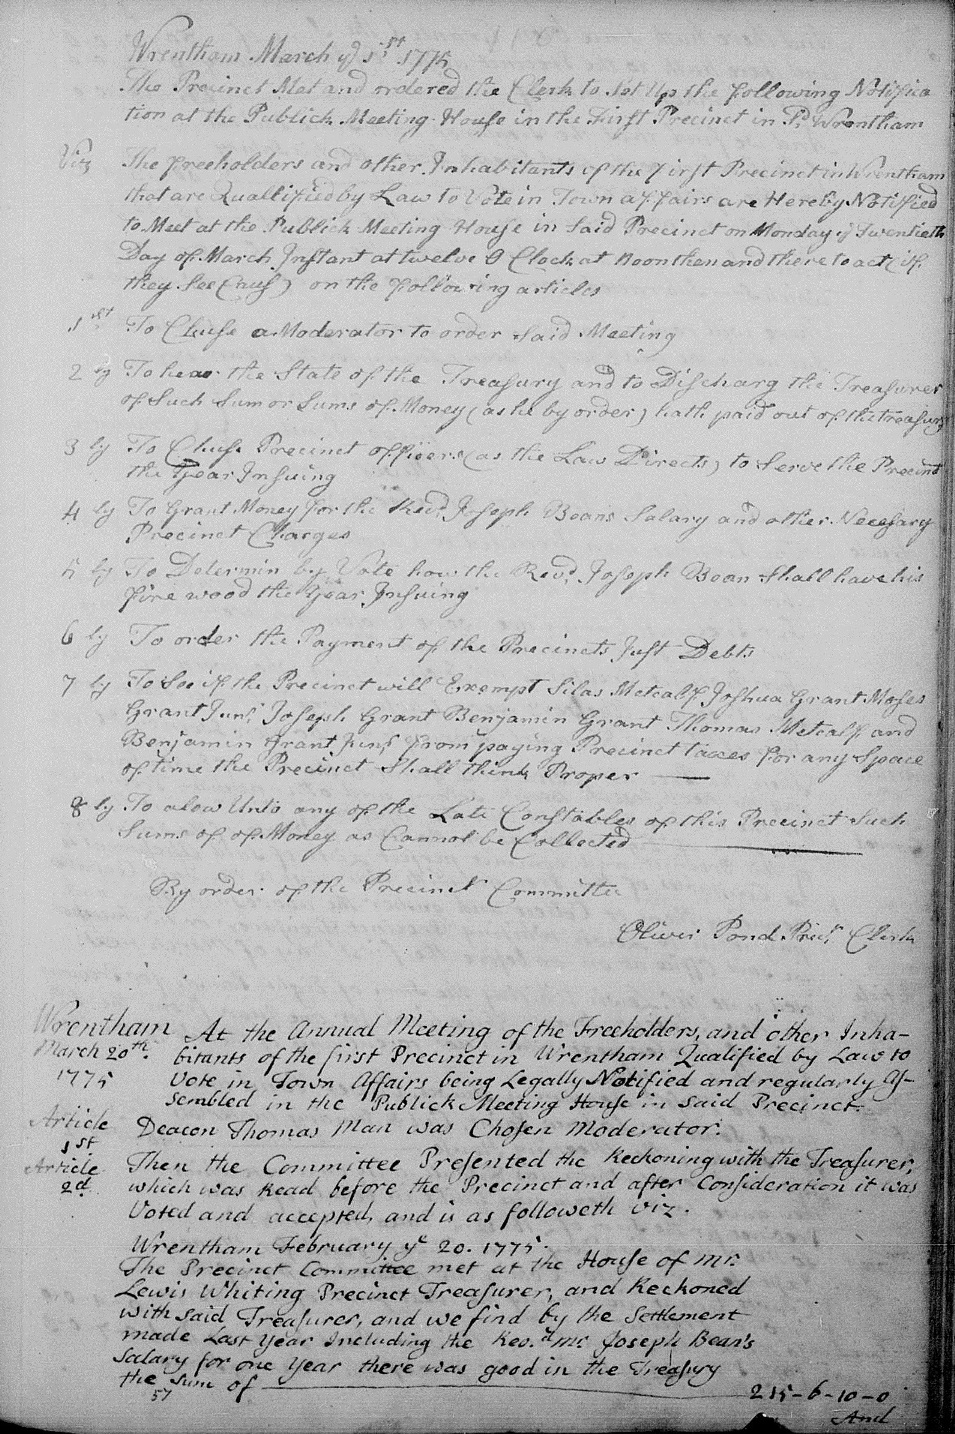 Wrentham March ye 1st 1775
The Precinct Met and ordered the Clerk to Set Up the following Notifica
tion at the Publick Meeting House in the First Precinct in Sd Wrentham
Viz The freeholders and other Inhabitants of the First Precinct in Wrentham
that are Quallified by Law to Vote in Town affairs are Hereby Notified
to Meet at the Publick Meeting House in Said Precinct on Monday ye Twentieth
Day of March Instant at twelve O Clock at Noon then and there to act (if
they See Caus) on the following articles
1st To Chuse a Moderator to order Said Meeting
2 ly To hear the State of the Treasury and to Discharg the Treasurer
of Such Sum or Sums of Money (as he by order) hath paid out of the treasury
3 ly To Chuse Precinct officers (as the Law Directs) to Serve the Precinct
the Year Insuing
4 ly To Grant Money for the Revd Joseph Beans Salary and other Necesary
Precinct Charges
5 ly To Determin by Vote how the Revd Joseph Bean Shall have his
fire wood the Year Insuing
6 ly To order the Payment of the Precincts Just Debts
7 ly To See if the Precinct will Exempt Silas Metcalf Joshua Grant Moses
Grant Junr Joseph Grant Benjamin Grant Thomas Metcalf and
Benjamin Grant Junr from paying Precinct taxes for any Space
of time the Precinct Shall think Proper
8 ly To alow Unto any of the Late Constables of this Precinct Such
Sums of of Money as Cannot be Collected
By order of the Precinct Committee
Oliver Pond Prect Clerk
Wrentham At the Annual Meeting of the Freeholders, and other Inha-
March 20th. bitants of the first Precinct in Wrentham Qualified by Law to
1775 Vote in Town Affairs being Legally Notified and regularly As-
sembled in the Publick Meeting House in said Precinct.
Article 1st Deacon Thomas Man was Chosen Moderator.
Article 2d Then the Committee Presented the Reckoning with the Treasurer,
which was Read before the Precinct and after Consideration it was
Voted and accepted, and is as followeth viz.
Wrentham February ye 20. 1775.
The Precinct Committee met at the House of Mr.
Lewis Whiting Precinct Treasurer, and Reckoned
with said Treasurer, and we find by the Settlement
made Last Year Including the Rev.d Mr. Joseph Bean's
Salary for one Year there was good in the Treasury
the Sum of 215-6-10-0
57
And